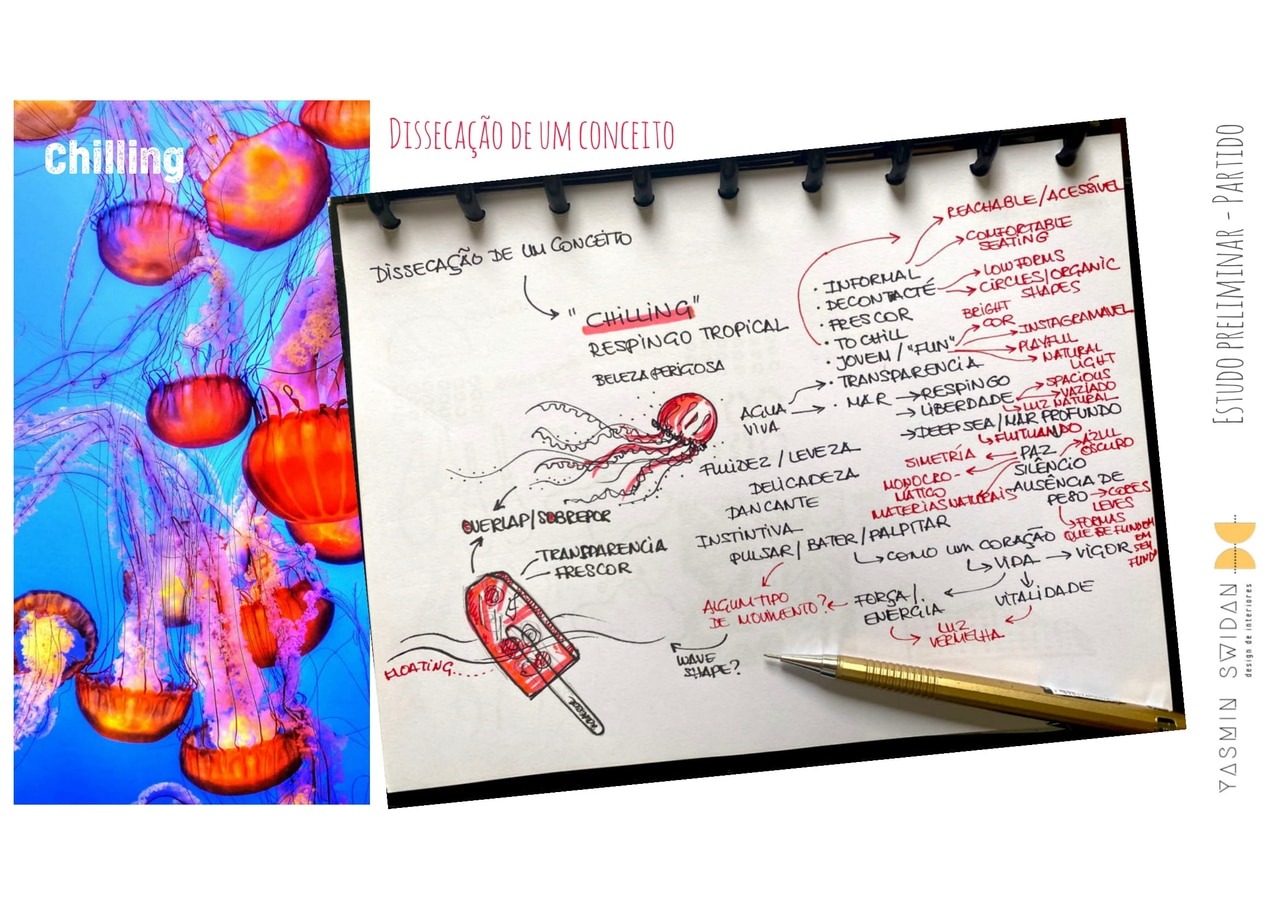 Chilling
DISSECAÇÃO DE UM CONCEITO
DISSECAÇÃO DE UM CONCEITO
"CHILLING"
RESPINGO TROPICAL
BELEZA PERIGOSA
AGUA
VIVA
• INFORMAL
• DECONTACTÉ
• FRESCOR
• TO CHILL
• JOVEM / "FUN"
• TRANSPARENCIA
• MAR → RESPINGO
→ LIBERDADE
→ DEEP SEA / MAR PROFUNDO
REACHABLE / ACESSÍVEL
COMFORTABLE
SEATING
LOW FORMS
CIRCLES/ORGANIC
SHAPES
BRIGHT
COR
INSTAGRAMAVEL
PLAYFUL
NATURAL
LIGHT
SPACIOUS
VAZIADO
LUZ NATURAL
FLUTUANDO
PAZ
SILÊNCIO
AUSÊNCIA DE
PESO → CORES
LEVES
FORMAS
QUE SE FUNDEM
EM
SEU
FUNDO
AZUL
OSCURO
SIMETRÍA
MONOCRO-
MATICO
MATERIAS NATURAIS
FLUIDEZ / LEVEZA
DELICADEZA
DANCANTE
INSTINTIVA
PULSAR / BATER / PALPITAR
COMO UM CORAÇÃO
VIDA → VIGOR
VITALIDADE
FORÇA /
ENERGIA
LUZ
VERMELHA
ALGUM TIPO
DE MOVIMENTO?
WAVE
SHAPE?
OVERLAP/SOBREPOR
TRANSPARENCIA
FRESCOR
FLOATING.....
ESTUDO PRELIMINAR - PARTIDO
YASMIN SWIDAN
design de interiores